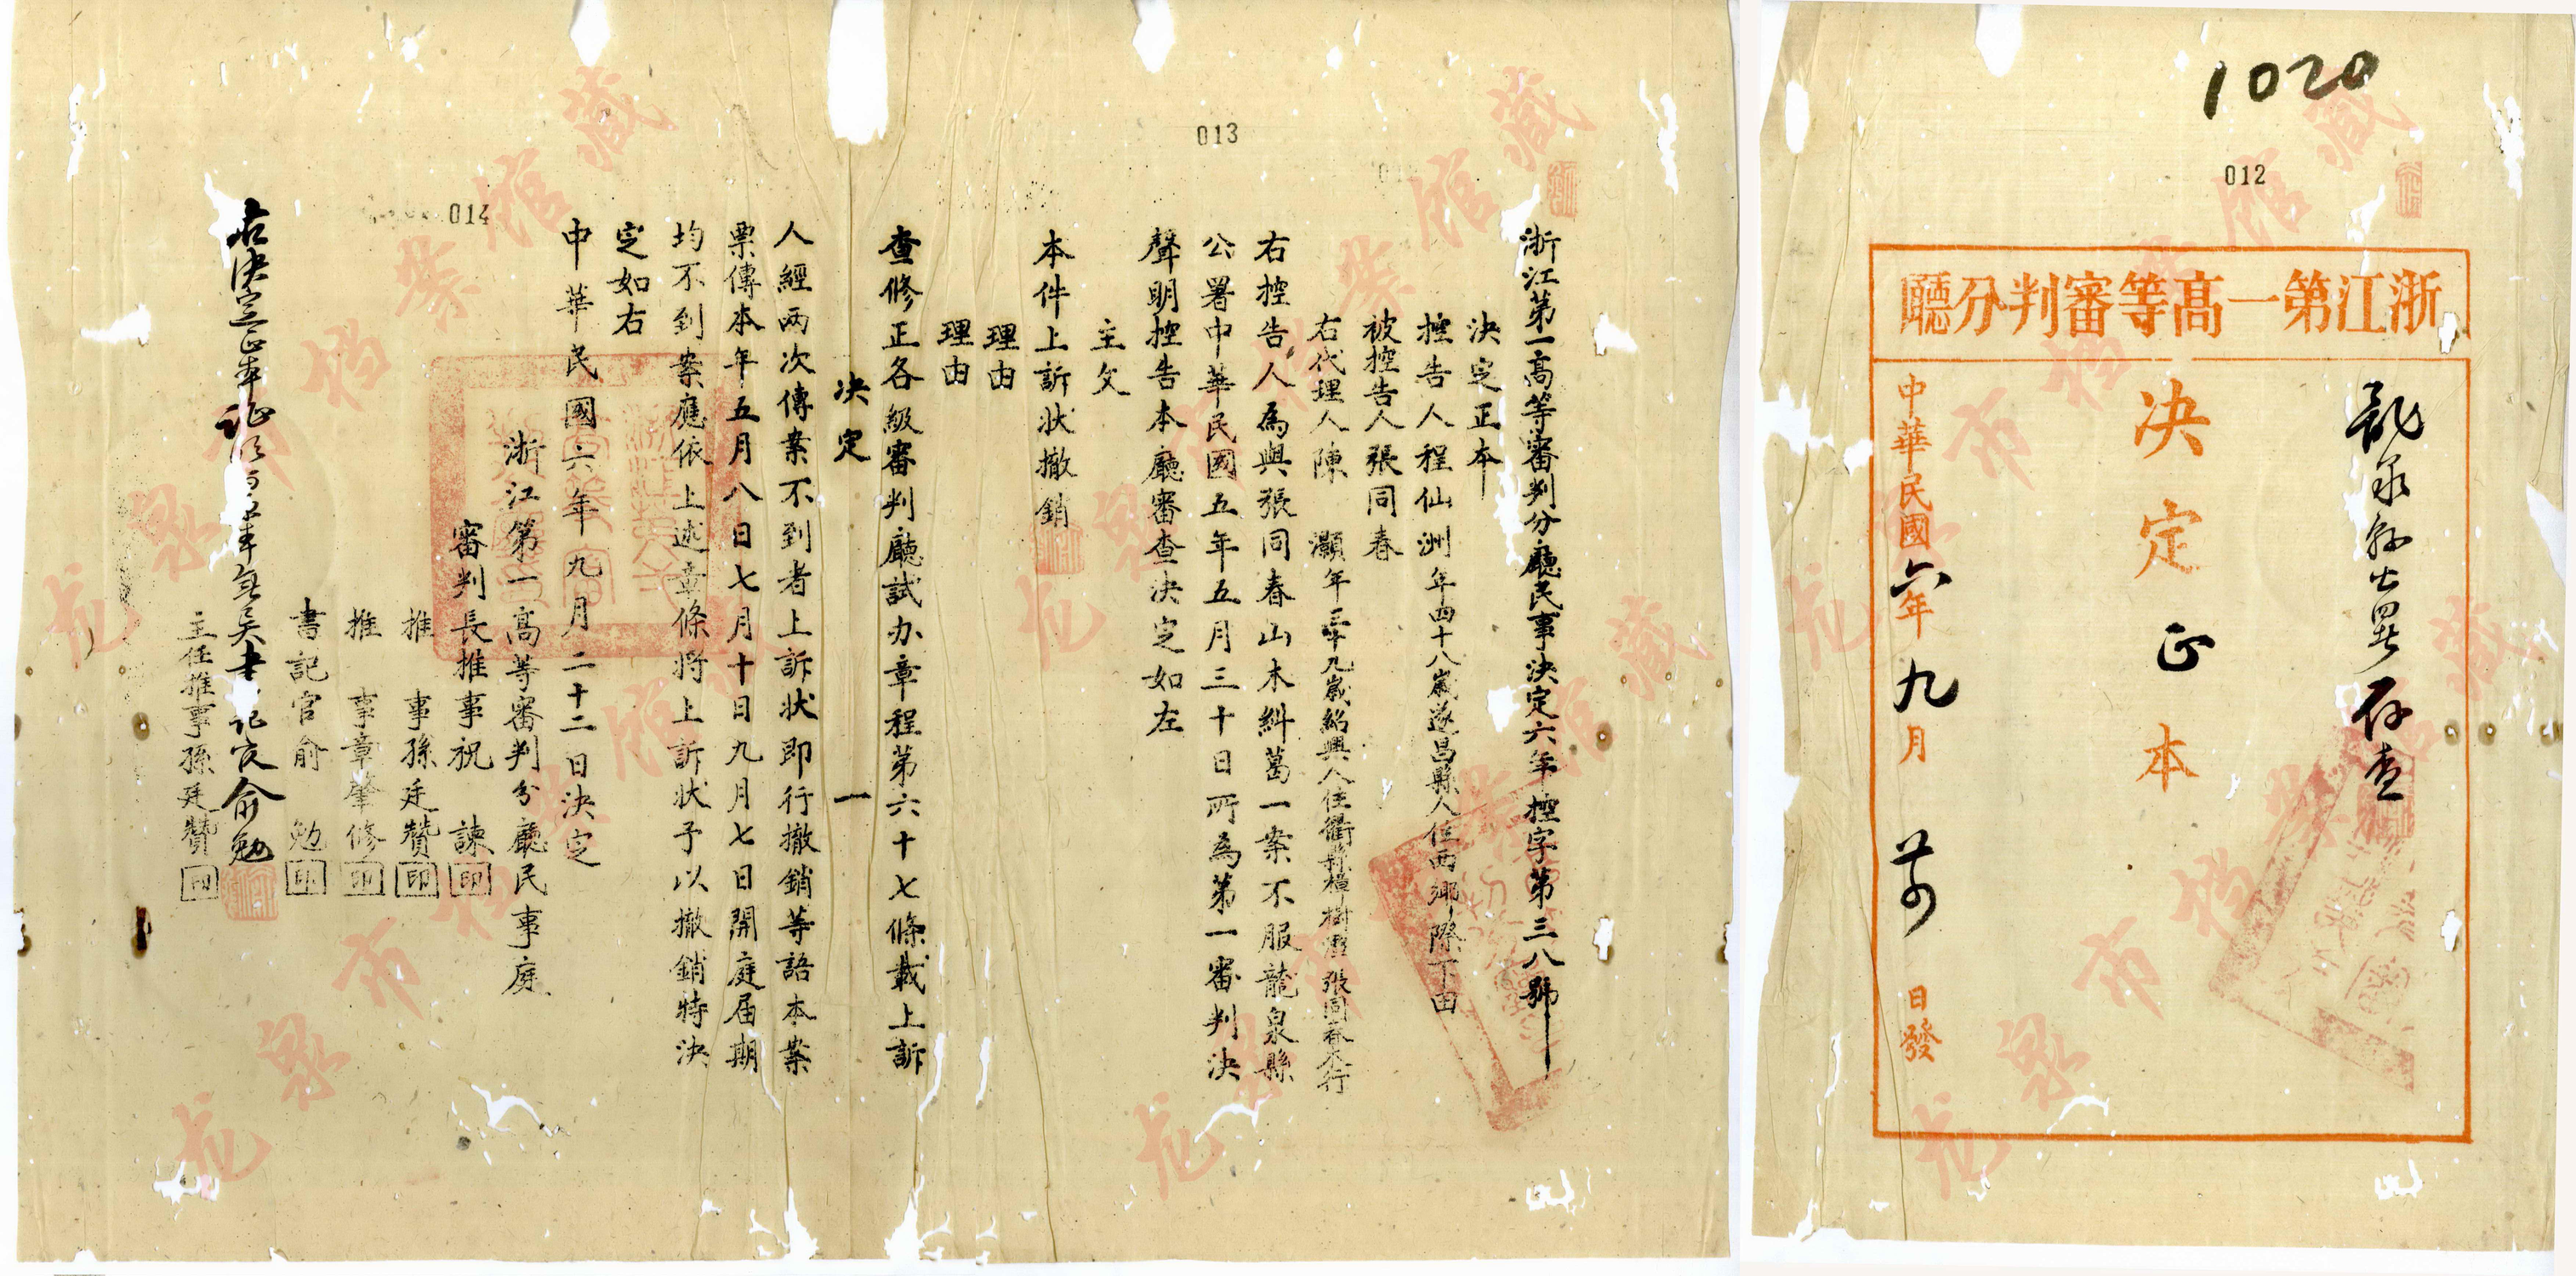 1020
012
浙江第一高等審判分廳
龍泉縣公署存查
決定正本
中華民國六年九月廿四日發
013
浙江第一高等審判分廳民事決定六年控字第三八號
決定正本
控告人程仙洲年四十八歲遂昌縣人住西鄉際下田
被控告人張同春
右代理人陳灝年三十九歲紹興人住衢縣樟樹潭張同春木行
右控告人為與張同春山木糾葛一案不服龍泉縣
公署中華民國五年五月三十日所為第一審判決
聲明控告本廳審查決定如左
主文
本件上訴狀撤銷
理由
理由
查修正各級審判廳試办章程第六十七條載上訴
決定 一
人經兩次傳案不到者上訴狀即行撤銷等語本案
票傳本年五月八日七月十日九月七日開庭屆期
均不到案應依上述章條將上訴狀予以撤銷特決
定如右
中華民國六年九月二十二日決定
浙江第一高等審判分廳民事庭
014
審判長推事祝諫印
推事孫廷贊印
推事章肇修印
書記官俞勉印
右決定正本證明與原本無異書記官俞勉
主任推事孫廷贊印
龙泉市档案馆藏